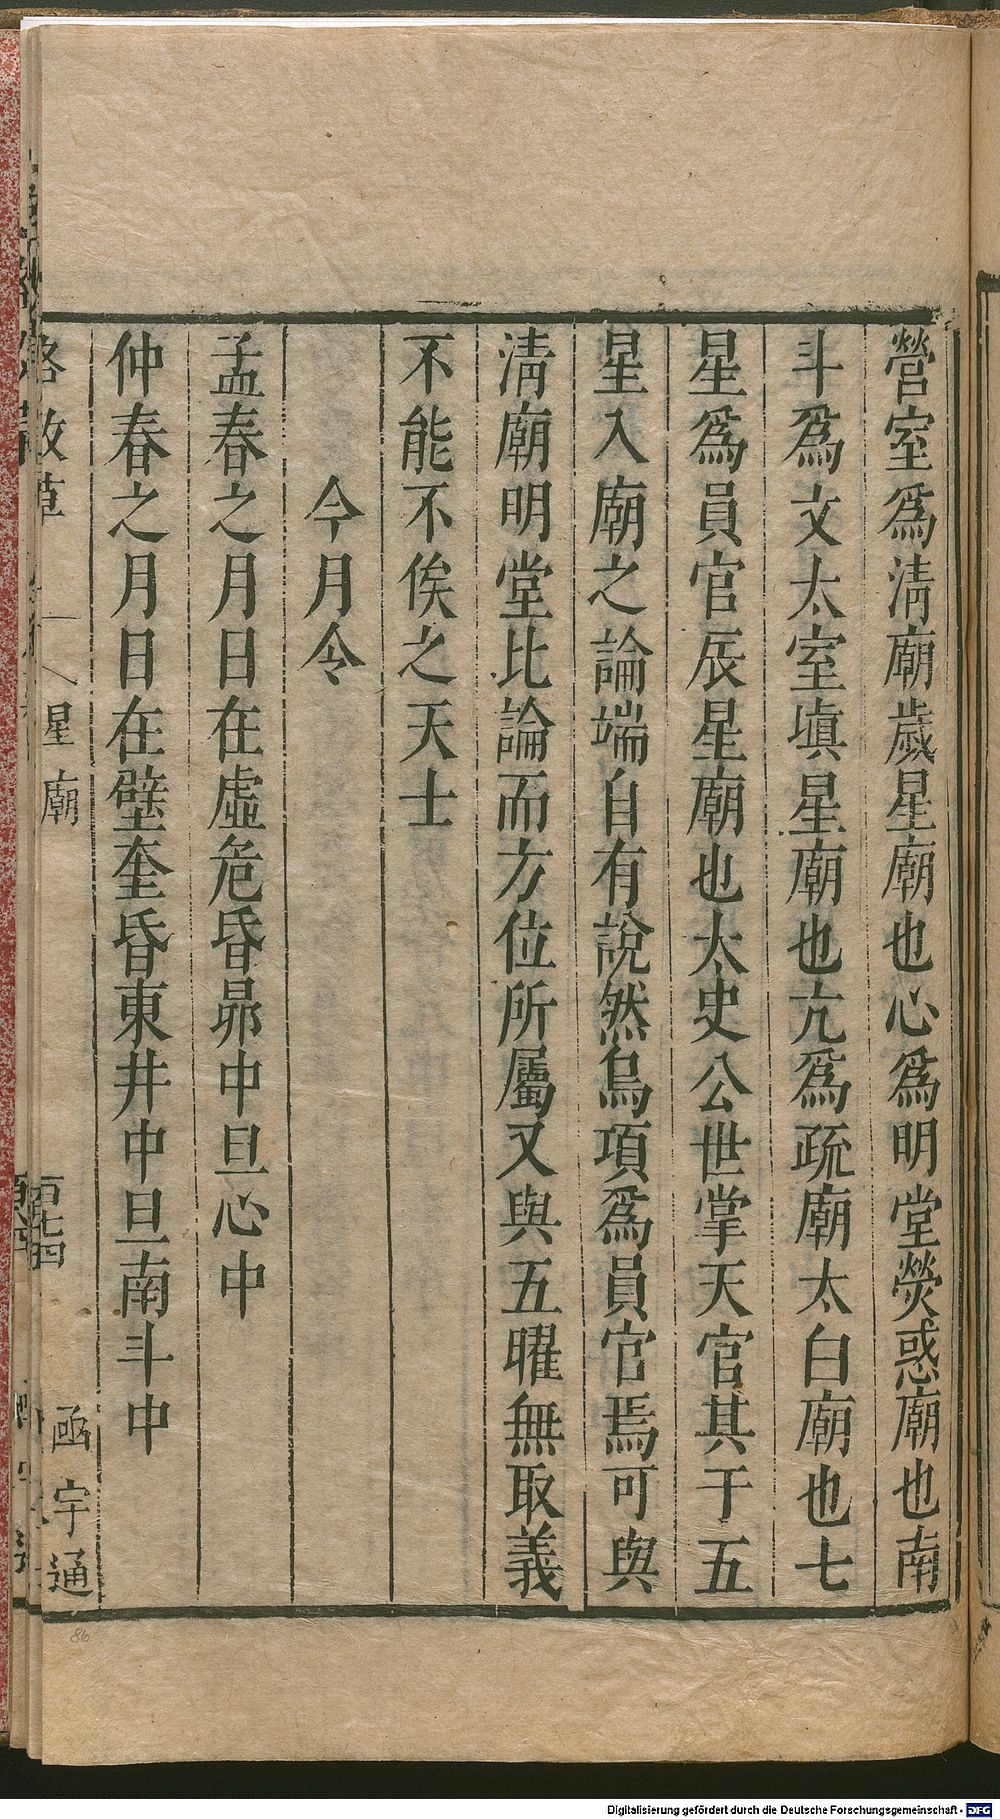 營室爲清廟歲星廟也心爲明堂熒惑廟也南
斗爲文太室塡星廟也亢爲疏廟太白廟也七
星爲員官辰星廟也太史公世掌天官其于五
星入廟之論端自有說然烏項爲員官焉可與
清廟明堂比論而方位所屬又與五曜無取義
不能不俟之天士
今月令
孟春之月日在虛危昏昴中旦心中
仲春之月日在壁奎昏東井中旦南斗中
格致草
星廟
百七四
函宇通
86
Digitalisierung gefördert durch die Deutsche Forschungsgemeinschaft - DFG